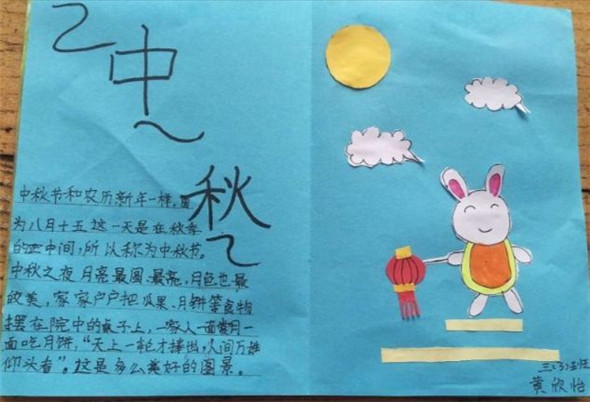 中
秋
中秋节和农历新年一样,因
为八月十五这一天是在秋季
的正中间,所以称为中秋节。
中秋之夜月亮最圆、最亮,月色也最
皎美,家家户户把瓜果、月饼等食物
摆在院中的桌子上,一家人一面赏月一
面吃月饼,“天上一轮才捧出,人间万姓
仰头看”。这是多么美好的图景。
黄欣怡